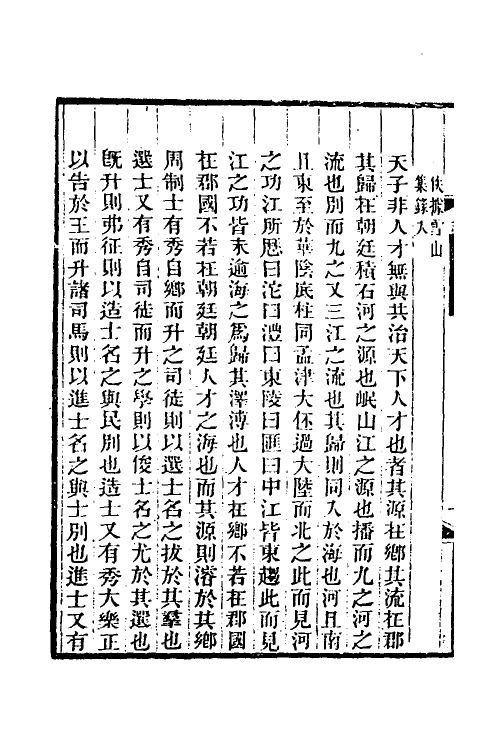 佚據雪山
集錄入
天子非人才無與共治天下人才也者其源在鄉其流在郡
其歸在朝廷積石河之源也岷山江之源也播而九之河之
流也別而九之又三江之流也其歸則同入於海也河且南
且東至於華陰底柱同孟津大伾過大陸而北之此而見河
之功江所歷曰沱曰澧曰東陵曰匯曰中江皆東趨此而見
江之功皆未逾海之爲歸其澤溥也人才在鄉不若在郡國
在郡國不若在朝廷朝廷人才之海也而其源則濬於其鄉
周制士有秀自鄉而升之司徒則以選士名之拔於其羣也
選士又有秀自司徒而升之學則以俊士名之尤於其選也
旣升則弗征則以造士名之與民別也造士又有秀大樂正
以告於王而升諸司馬則以進士名之與士別也進士又有